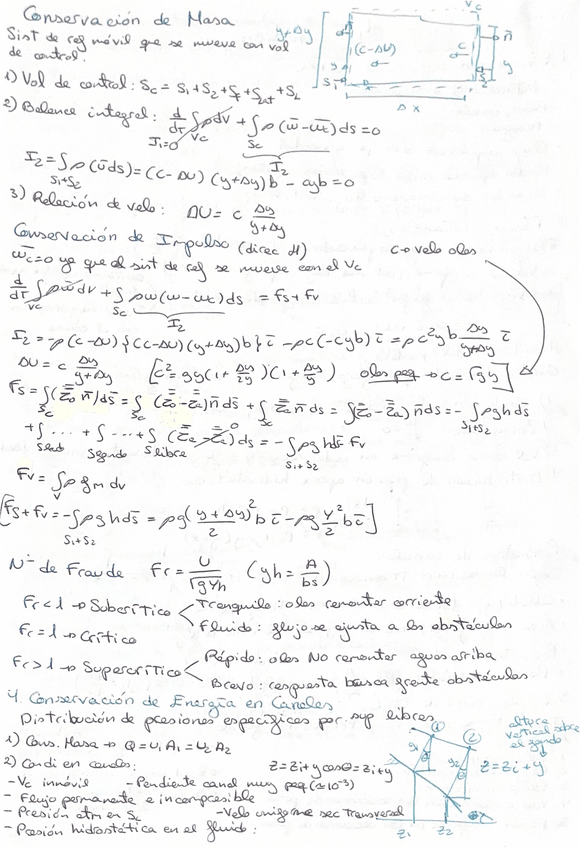 Conservación de Masa
Sist de ref móvil que se mueve con vol
de control.
y+Δy
Vc
(c-ΔU)
c
n̄
y
S1
S2
Δx
1) Vol de control: Sc = S1 + S2 + Sf + Slat + SL
2) Balance integral: d/dt ∫Vc ρdv + ∫Sc ρ(w̄ - w̄c)ds = 0
I1=0
I2
I2 = ∫S1+S2 ρ(ūds) = (c-ΔU)(y+Δy)b - cyb = 0
3) Relación de velo: ΔU = c Δy/(y+Δy)
Conservación de Impulso (direc H) c → velo olas
w̄c=0 ya que el sist de ref se mueve con el Vc
d/dt ∫Vc ρw̄dv + ∫Sc ρw(w-wc)ds = Fs + Fv
I2
I2 = -ρ(c-ΔU){(c-ΔU)(y+Δy)b}ī - ρc(-cyb)ī = ρc²yb Δy/(y+Δy) ī
ΔU = c Δy/(y+Δy) [c² = gy(1+Δy/2y)(1+Δy/y) olas peq → c=√gy]
Fs = ∫Sc(τ̄0 n̄)ds = ∫Sc(τ̄0-τ̄a)n̄ds + ∫Sc τ̄a n̄ds = ∫(τ̄0-τ̄a)n̄ds = -∫S1+S2 ρghds̄
+∫Slat ... + ∫Sfondo ... + ∫Slibre (τ̄a-τ̄a)ds = -∫S1+S2 ρghds̄ Fv
0
Fv = ∫V ρgm dv
[Fs+Fv = -∫S1+S2 ρghds̄ = ρg (y+Δy)²/2 bī - ρg y²/2 bī]
Nº de Fraude Fr = U/√gYh (yh = A/bs)
Fr<1 → Subcrítico
Tranquilo: olas remontar corriente
Fluido: flujo se ajusta a los obstáculos
Fr=1 → Crítico
Fr>1 → Supercrítico
Rápido: olas No remontar aguas arriba
Bravo: respuesta brusca frente obstáculos
4. Conservación de Energía en Canales
Distribución de presiones específicas por sup libres
1) Cons. Masa → Q = U1A1 = U2A2
2) Condi en canales: z = zi + ycosθ = zi + y
- Vc inmóvil - Pendiente canal muy peq (≤10⁻³)
- Flujo permanente e incompresible
- Presión atm en SL - Velo uniforme sec Transversal
- Presión hidrostática en el fluido:
1
2
y1
y2
θ
θ
z1
z2
altura
vertical sobre
el fondo
z = zi + y